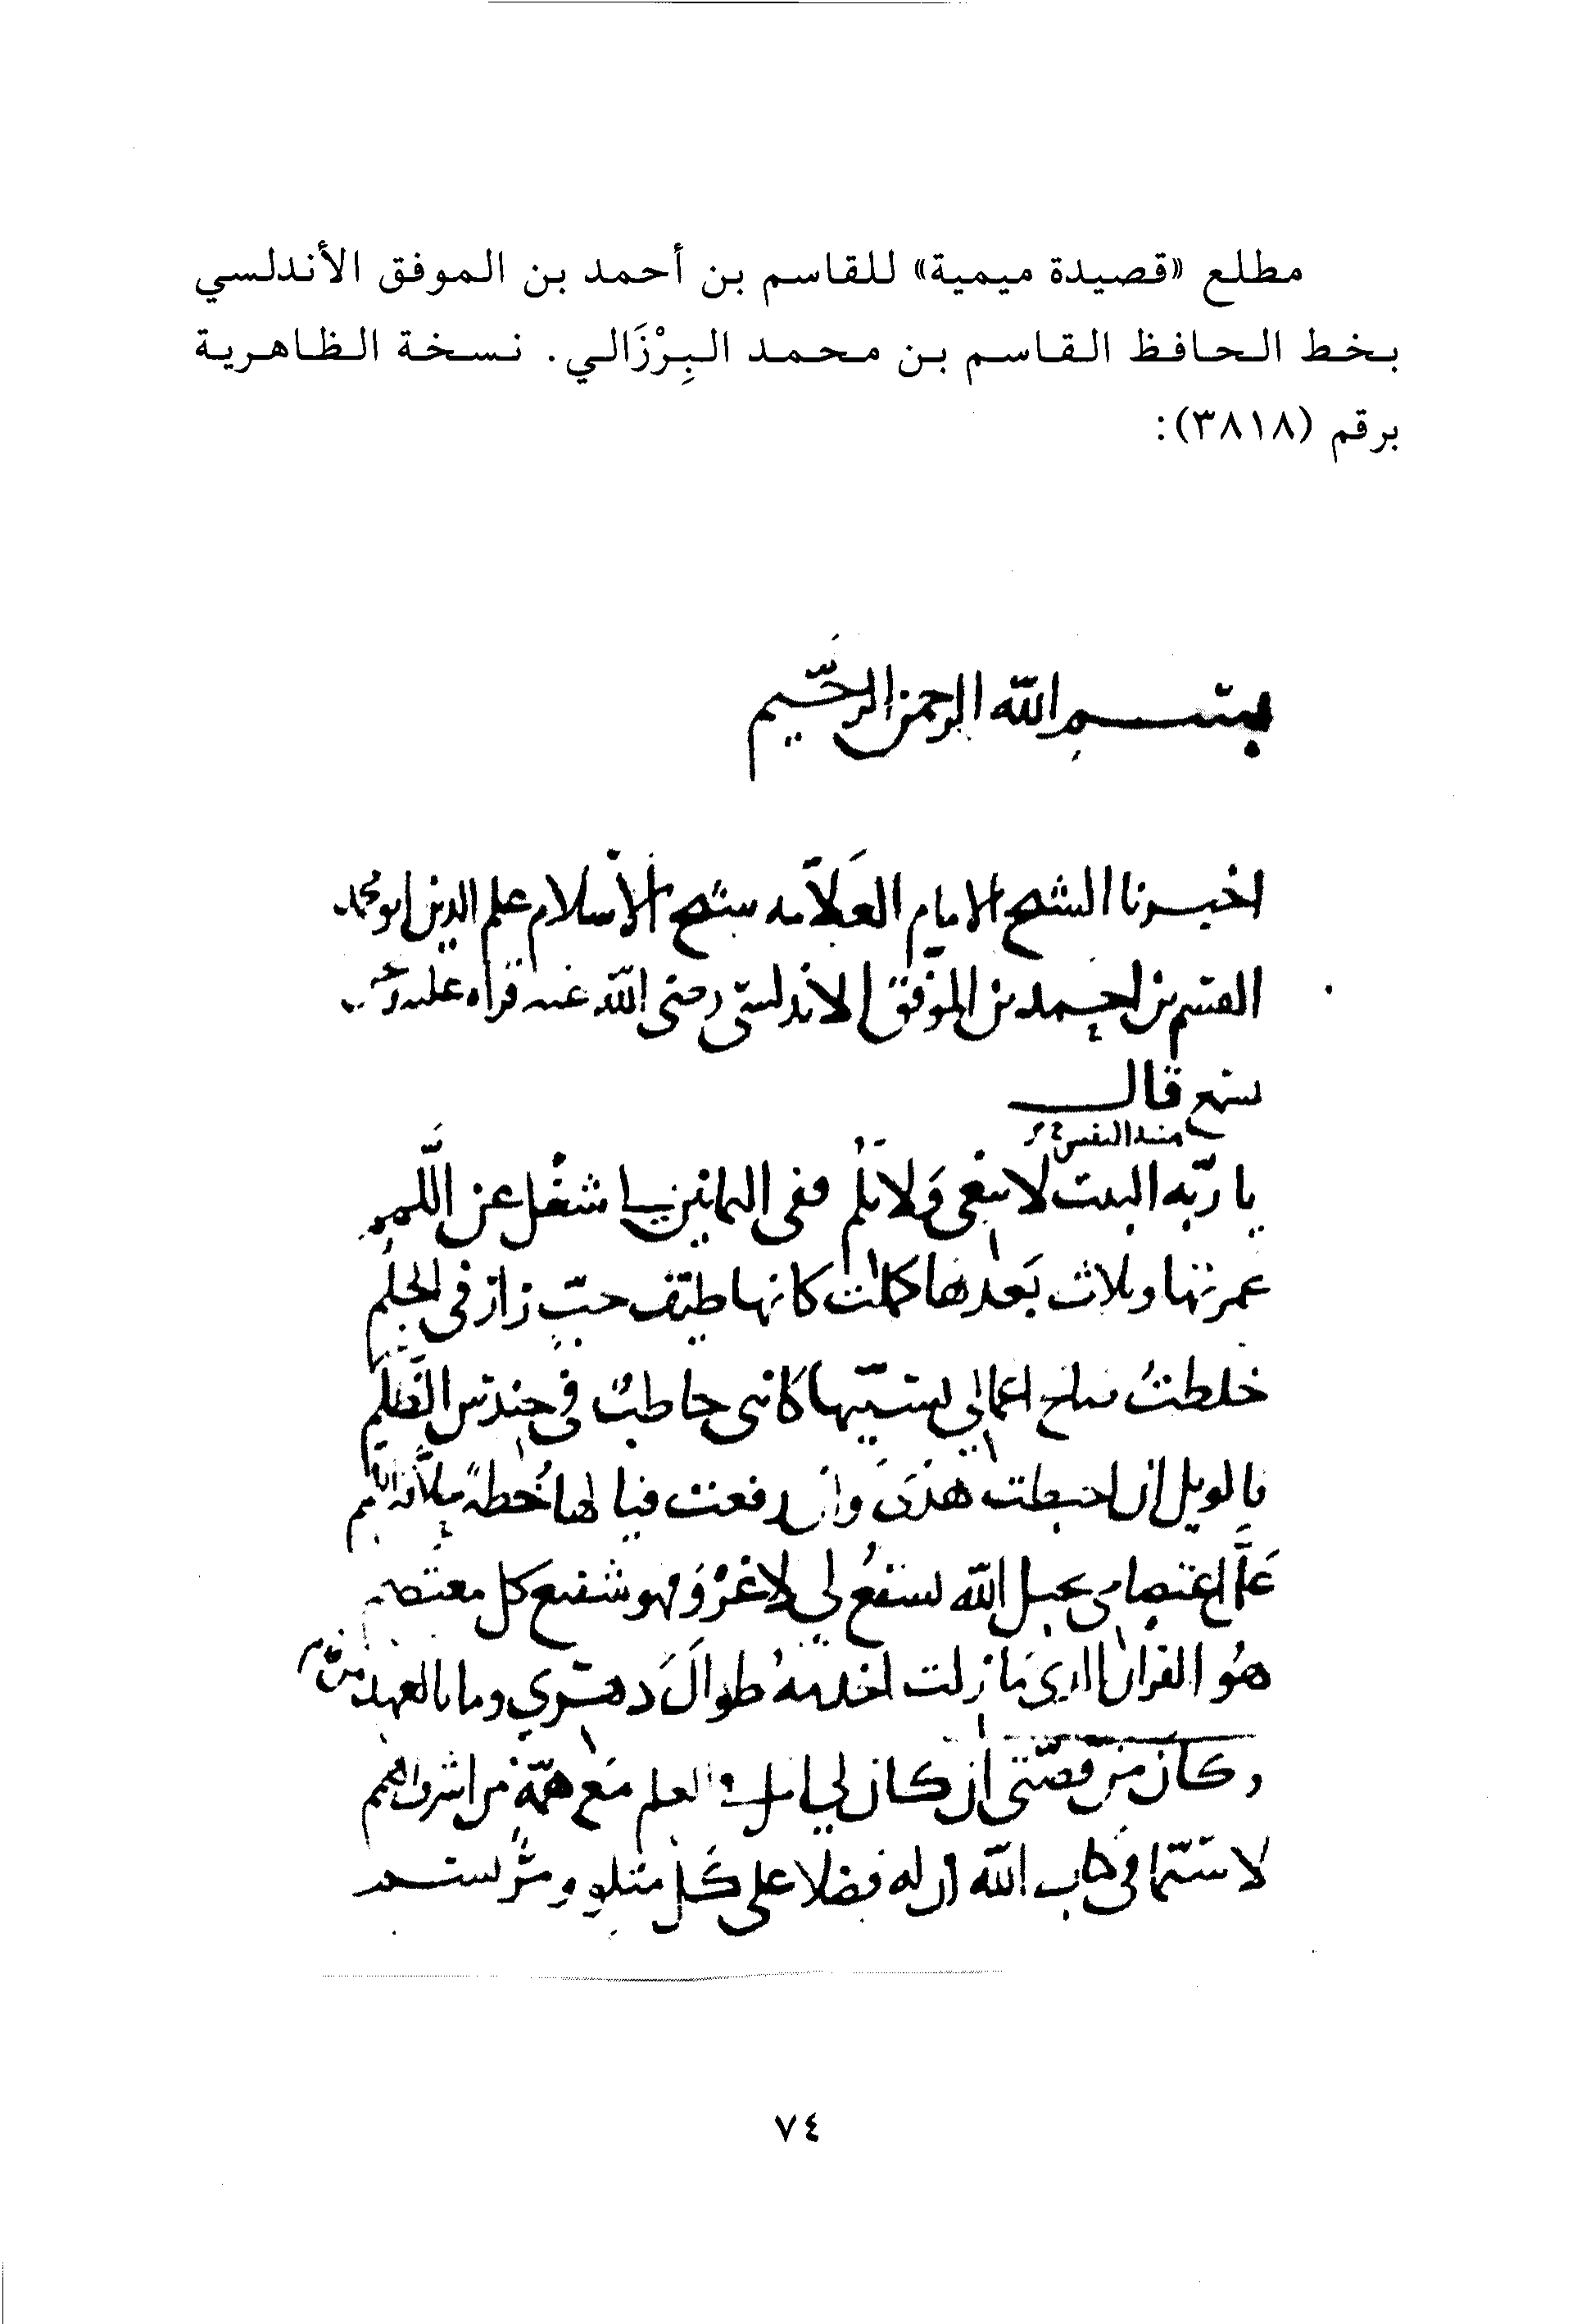 مطلع «قصيدة ميمية» للقاسم بن أحمد بن الموفق الأندلسي
بخط الحافظ القاسم بن محمد البِرْزَالي. نسخة الظاهرية
برقم (٣٨١٨):
بسم الله الرحمن الرحيم
اخبرنا الشيخ الامام العلامه شيخ الاسلام علم الدين ابو محمد
القسم بن احمد بن الموفق الاندلسي رضي الله عنه قراه عليه
نسمع قال
يا ربه البيت لا تبغي ولا تلم ففي الثمانين لي شغل عن اللمم
عمرتها وثلاث بعدها كملت كانها طيف حب زار في الحلم
خلطت صالح اعمالي بسيئها كانني حاطب في حندس الظلم
يا لويل ان احبطت هذي وان رفعت فيا لها خطة
عل اعتصامي بحبل الله يشفع لي لا غرو فهو شفيع كل معتصم
هو القران الذي ما زلت اخدمه طوال دهري وما بالعهد من
وكان من قصتي ان كان لي امل في العلم مع همة من اشرف الهمم
لا سيما في كتاب الله ان له فضلا على كل متلو
٧٤